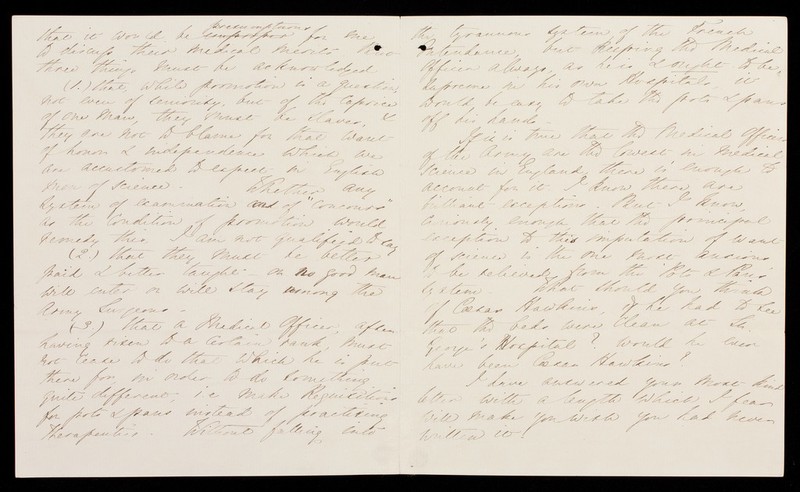 that it would be presumptuous for me
to discuss their medical merits
three things must be acknowledged
(1.) that, while promotion is a question
not even of seniority, but of the caprice
of one man, they must be slaves, &
they are not to blame for that want
of honor & independence which we
are accustomed to expect in English
men of science. Whether any
system of examination and of "concours"
as the condition of promotion would
remedy this I am not qualified to say
(2.) that they must be better
paid & better taught - or no good man
will enter or will stay among the
Army Surgeons -
(3) that a Medical Officer, after
having risen to a certain rank, must
not cease to do that which he is put
there for, in order to do something
quite different, i e make requisitions
for pots & pans instead of practising
Therapeutics. Without falling into
the tyrannous system of the French
Intendance, but keeping the Medical
Officer always, as he is & ought to be,
supreme in his own Hospitals, it
would be easy to take the pots & pans
off his hands -
If it is true that the Medical Officers
of the Army are the lowest in medical
science in England, there is enough to
account for it. I know there are
brilliant exceptions. But I know
curiously enough that the principal
exception to this imputation of want
of science is the one most anxious
to be relieved from the Pots & Pans
system. What should you think
of Cæsar Hawkins, if he had to see
that the beds were clean at St.
George's Hospital? Would he ever
have been Cæsar Hawkins?
I have answered your most kind
letter with a length which I fear
will make you wish you had never
written it